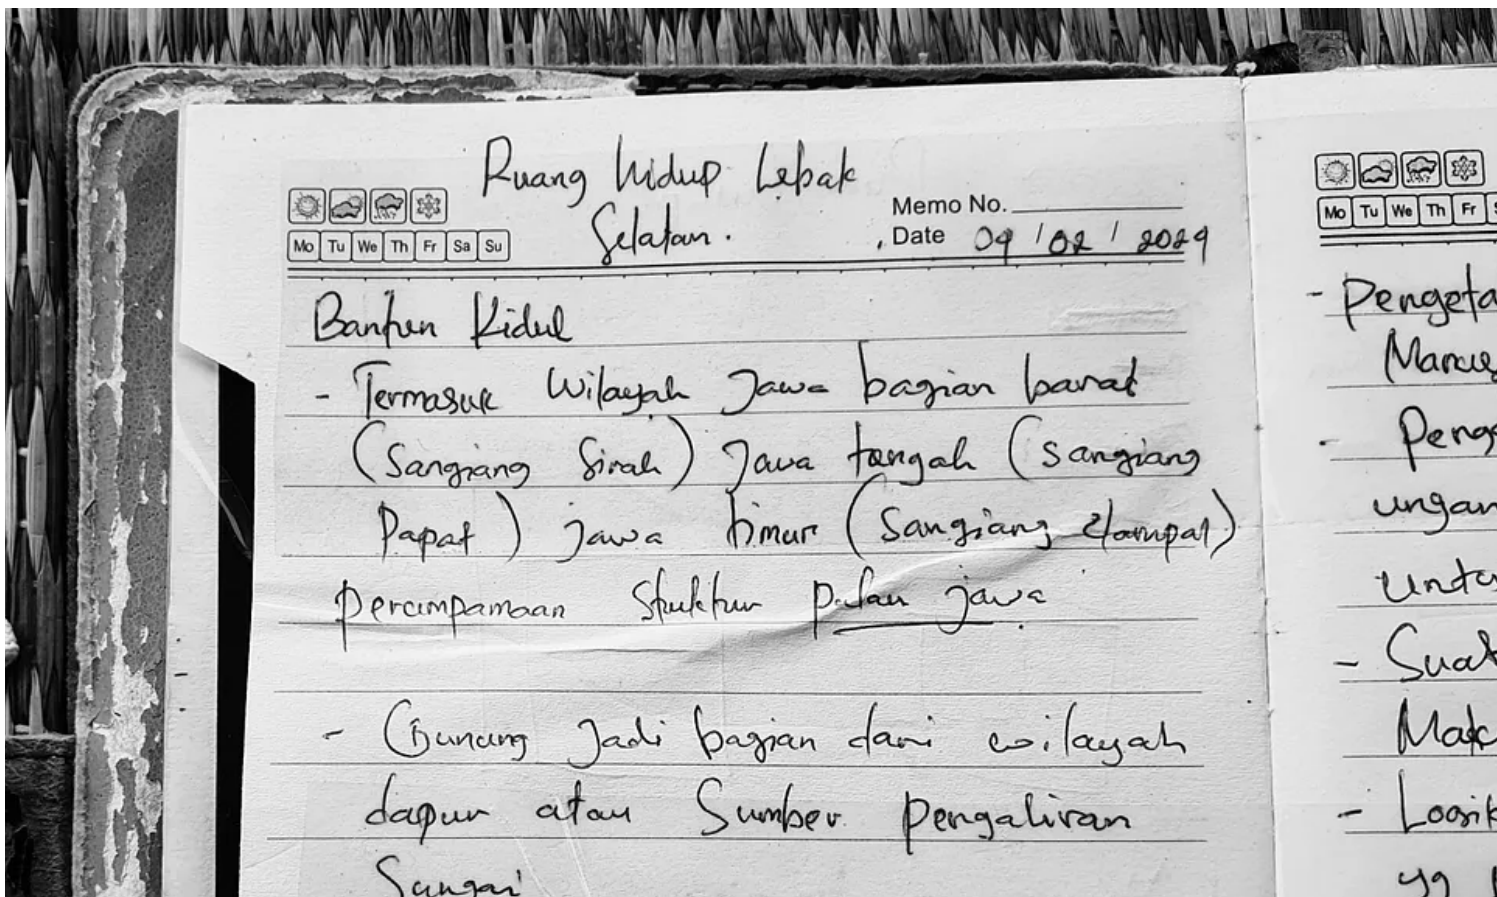 Ruang hidup Lebak
Selatan.
Mo Tu We Th Fr Sa Su
Memo No.
Date 09 / 02 / 2029
Banten Kidul
- Termasuk Wilayah Jawa bagian barat
(Sangiang Sirah) Jawa tengah (Sangiang
Papat) jawa timur (Sangiang
perumpamaan Struktur pulau jawa
- Gunung Jadi bagian dari wilayah
dapur atau Sumber pengaliran
Sungai
Mo Tu We Th Fr
- Pengeta
- Peng
ungan
- Suat
Mak
- Logik
yg